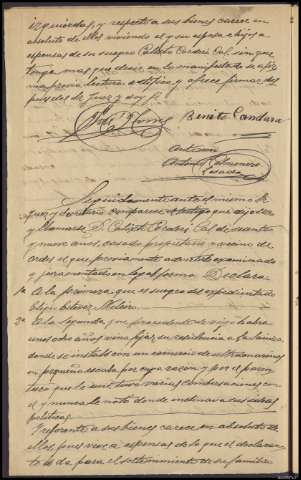 izquierdas, y respecto a sus bienes carece en
absoluto de ellos viviendo él y su esposa e hijos a
espensas de su suegro Calixto Cordeiro Cal, sin que
tenga mas que decir, en lo manifestado se afir-
ma previa lectura ratifica y ofrece firma des-
pues del Sr. Juez y doy fé.
Benito Candara
Ante mi
Antonio
Seguidamente ante el mismo Sr.
Juez y Secretario comparece el testigo que dijo ser
y llamarse D. Calixto Cordeiro Cal de sesenta
y nueve años, casado propietario y vecino de
Ordes el que previamente advertido examinado
y juramentado en legal forma Declara:
1ª A la primera que es suegro del expedientado
Eligio
2ª A la segunda que procedente de Vigo habra
unos ocho años vino fijar su residencia a
donde se instaló con un comercio de ultramarinos
en pequeña escala por cuya razon y por el paren-
tesco que le une tuvo varias conversaciones con
el y nunca le notó donde inclinara sus ideas
politicas.
Y referente a sus bienes carece en absoluto de
ellos, pues vive a espensas de lo que el declaran-
te le da para el sostenimiento de su familia